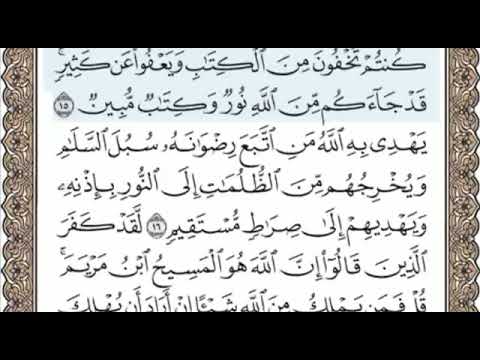 كُنتُمْ تُخْفُونَ مِنَ ٱلْكِتَٰبِ وَيَعْفُوا۟ عَن كَثِيرٍ ۚ
قَدْ جَآءَكُم مِّنَ ٱللَّهِ نُورٌ وَكِتَٰبٌ مُّبِينٌ ١٥
يَهْدِى بِهِ ٱللَّهُ مَنِ ٱتَّبَعَ رِضْوَٰنَهُۥ سُبُلَ ٱلسَّلَٰمِ
وَيُخْرِجُهُم مِّنَ ٱلظُّلُمَٰتِ إِلَى ٱلنُّورِ بِإِذْنِهِۦ
وَيَهْدِيهِمْ إِلَىٰ صِرَٰطٍ مُّسْتَقِيمٍ ١٦ لَّقَدْ كَفَرَ
ٱلَّذِينَ قَالُوٓا۟ إِنَّ ٱللَّهَ هُوَ ٱلْمَسِيحُ ٱبْنُ مَرْيَمَ ۚ
قُلْ فَمَن يَمْلِكُ مِنَ ٱللَّهِ شَيْـًٔا إِنْ أَرَادَ أَن يُهْلِكَ